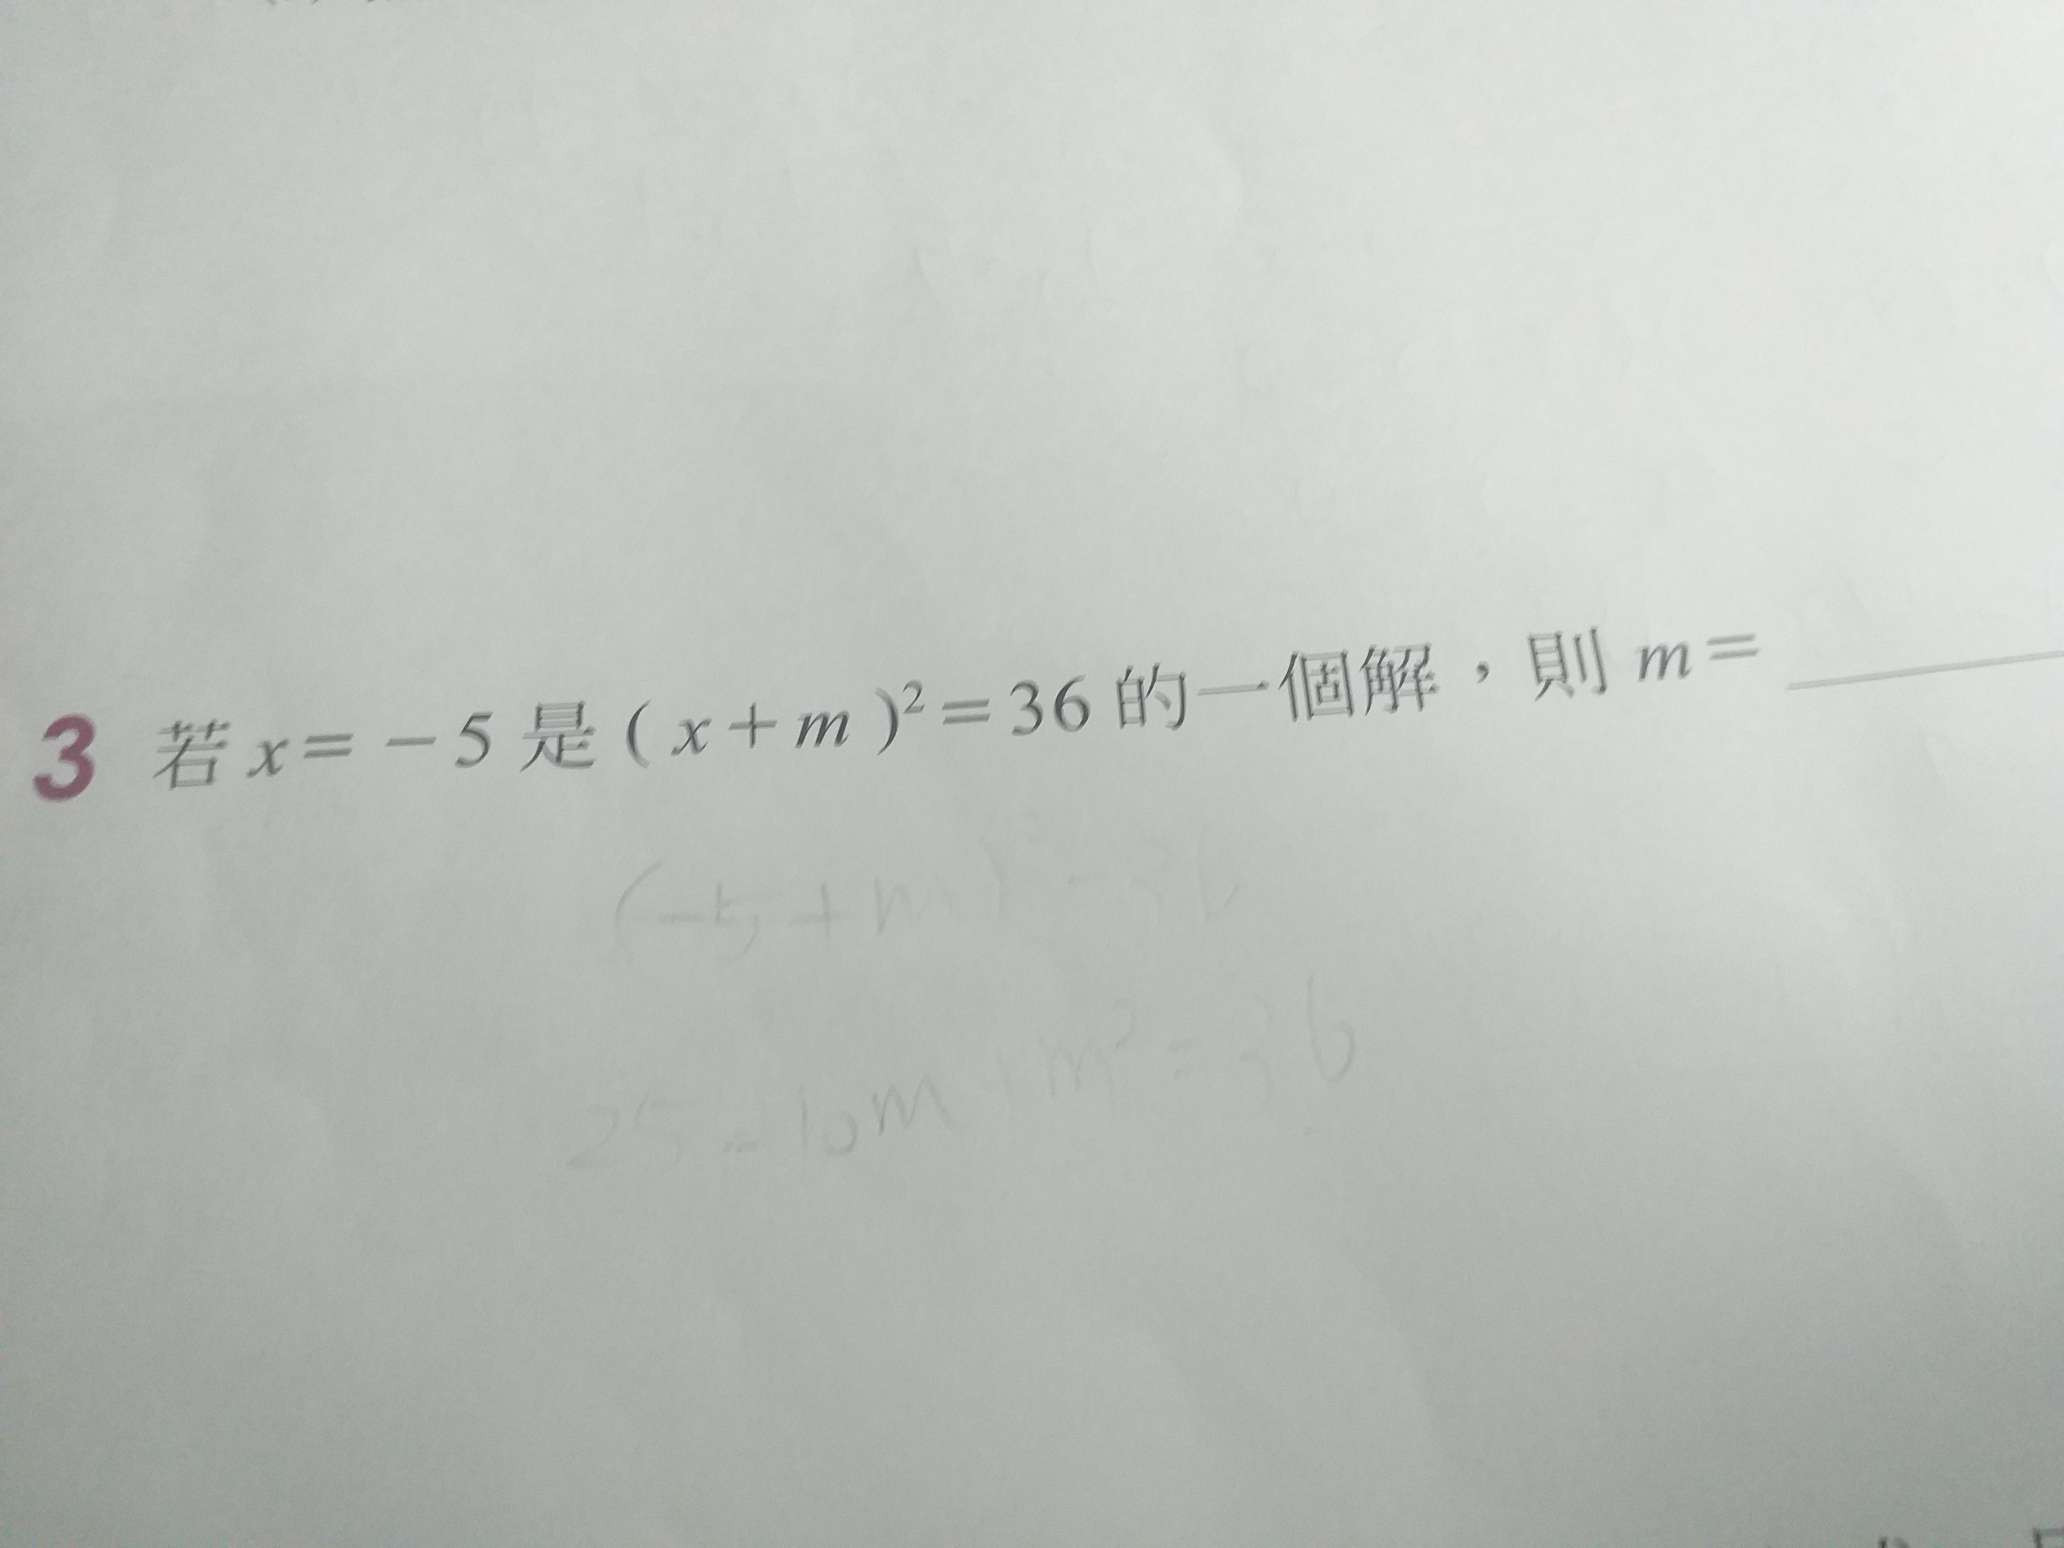 3 若 x = －5 是 ( x + m )² = 36 的一個解，則 m = ______
(-5+m)²=36
25-10m+m²=36